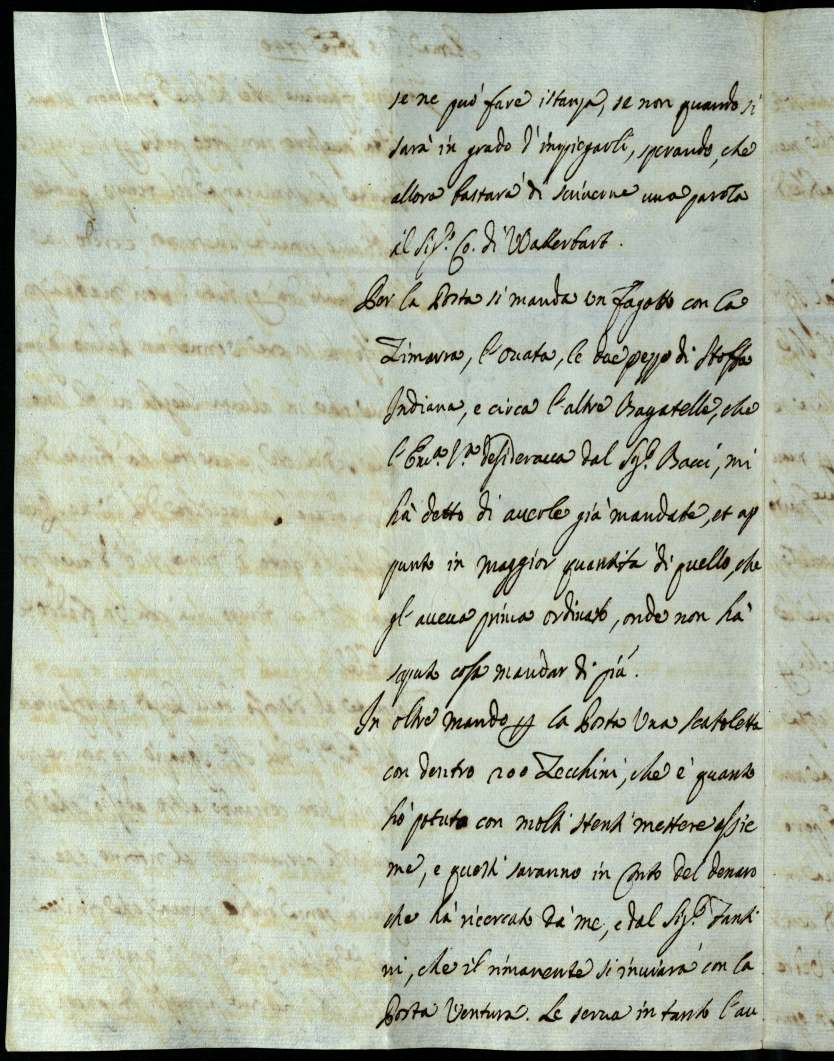 se ne può fare istanza, se non quando si
sarà in grado d'impiegarli, sperando, che
allora bastarà di scriverne una parola
al Sigr. Co. di Wakerbart.
Per la Posta si manda un fagotto con la
Zimarra, l'Ovata, le due pezze di Stoffa
Indiana, e circa l'altre Bagatelle, che
l'Ecca. Va. desiderava dal Sigr. Bacci, mi
hà detto di averle già mandate, et ap
punto in maggior quantità di quello, che
gl'aveva prima ordinato, onde non hà
saputo cosa mandar di più.
In oltre mando per la Posta una scatoletta
con dentro 200 Zecchini, che è quanto
hò potuto con molti stenti mettere assie
me, e questi saranno in conto del denaro
che hà ricercato da me, e dal Sigr. Fanti
ni, che il rimanente si inviarà con la
Posta Ventura. Le serva in tanto l'av